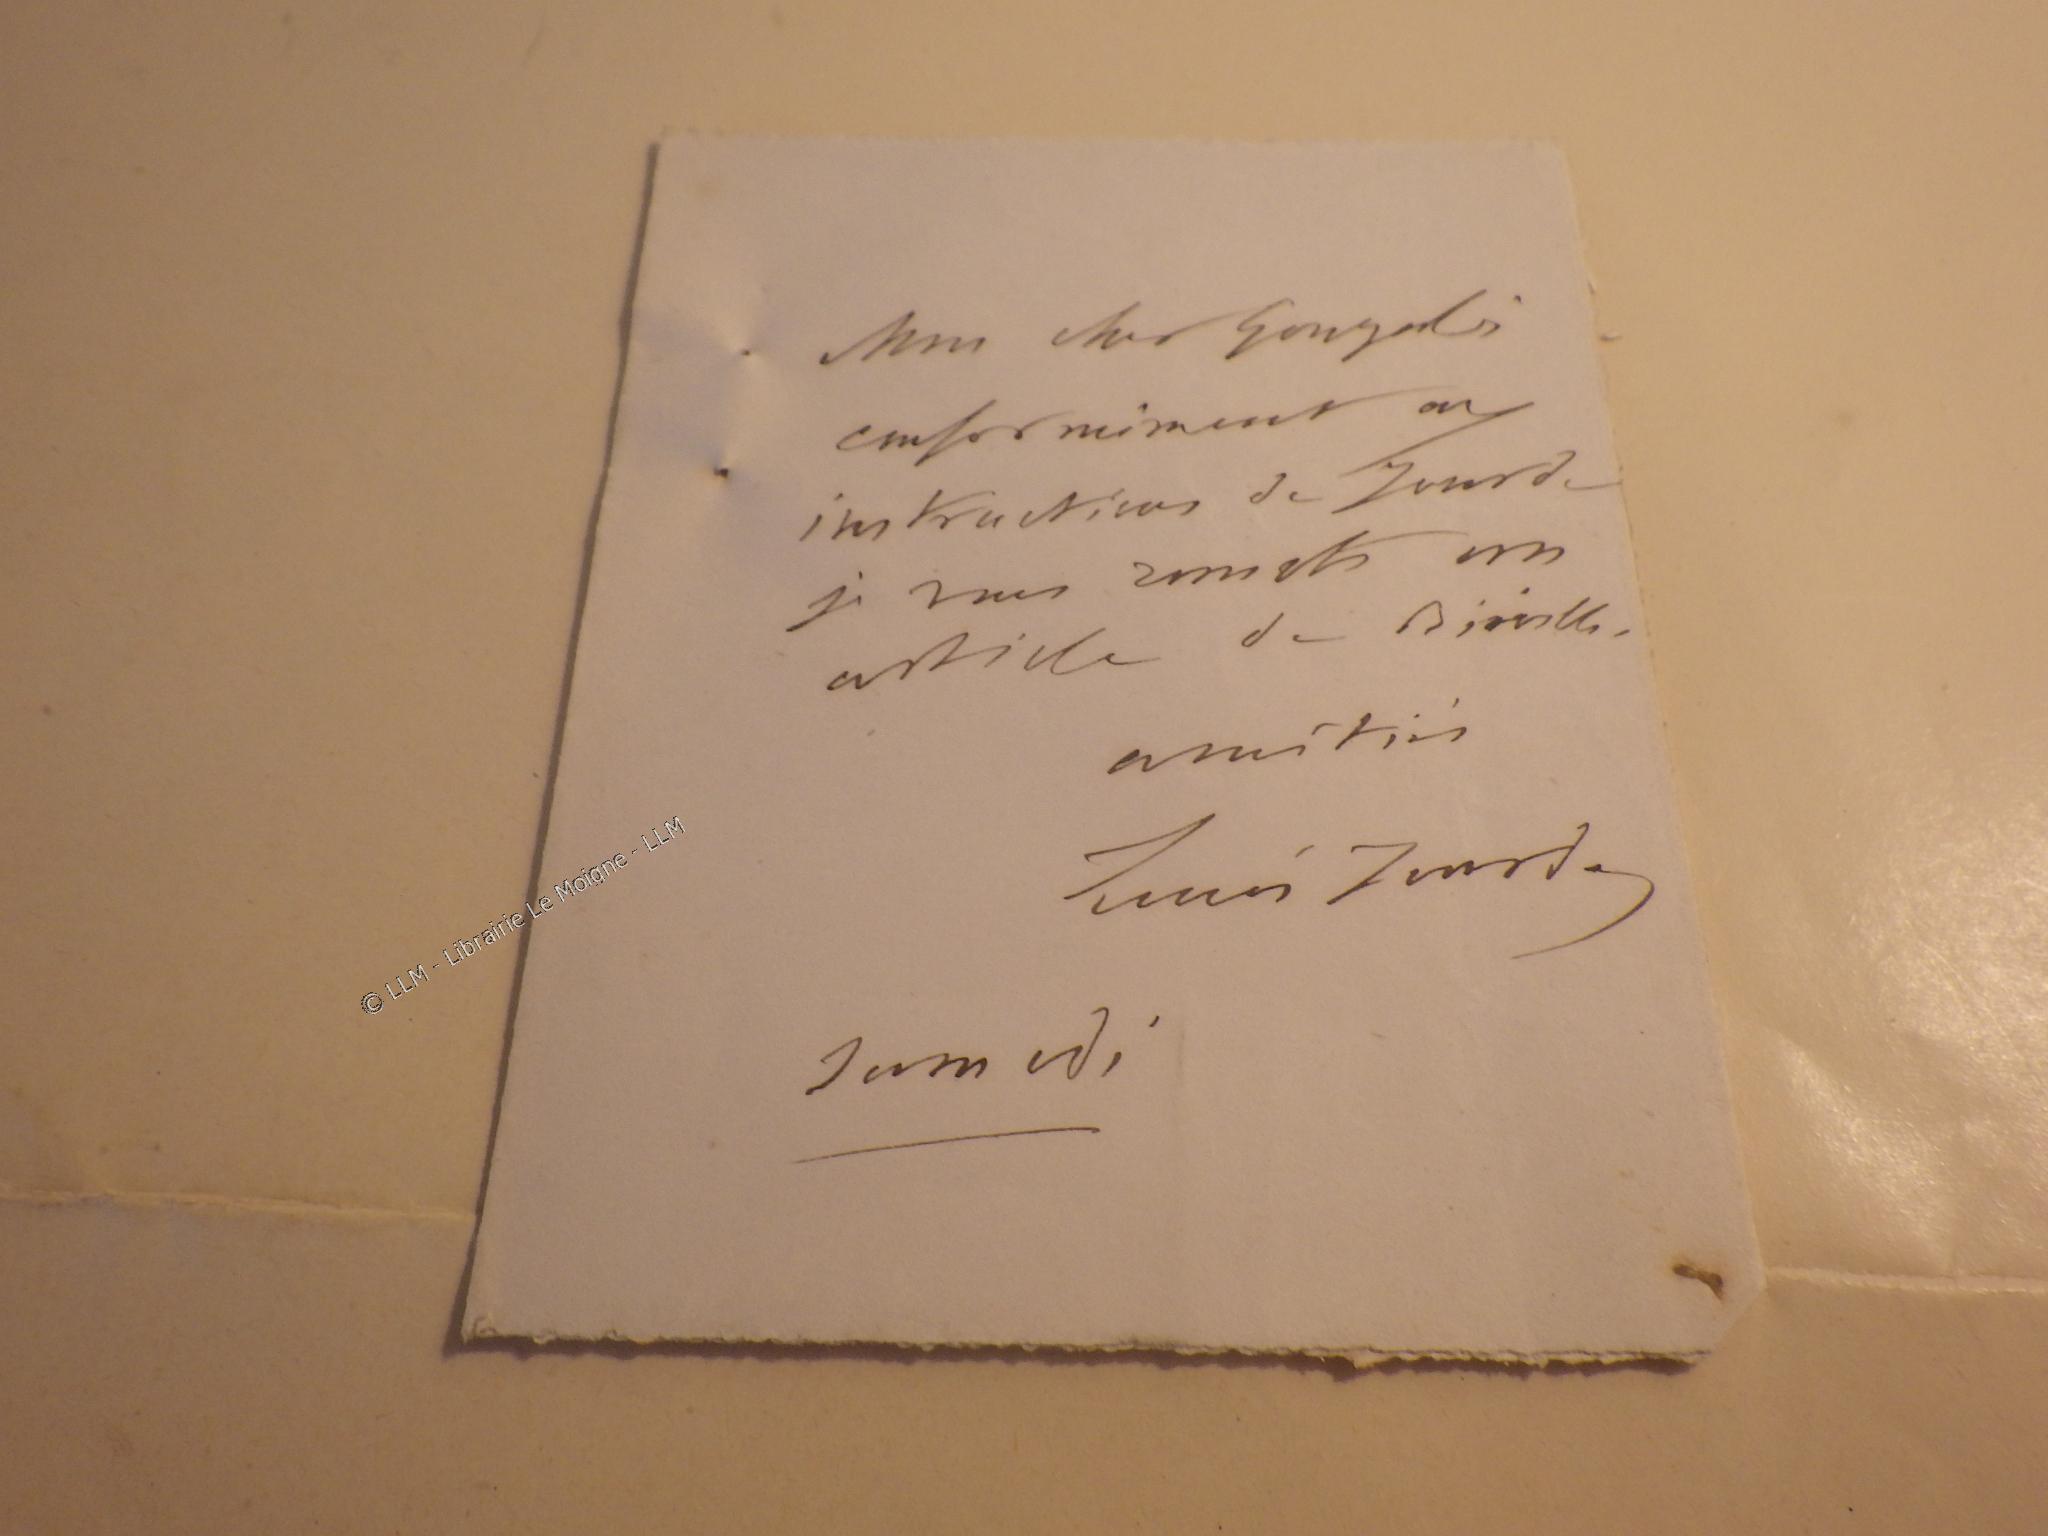 Mon cher Gonzalès
conformément aux
instructions de Jourde
je vous remets un
article de Biéville.
amitiés
Louis Jourdan
samedi
© LLM - Librairie Le Moigne - LLM